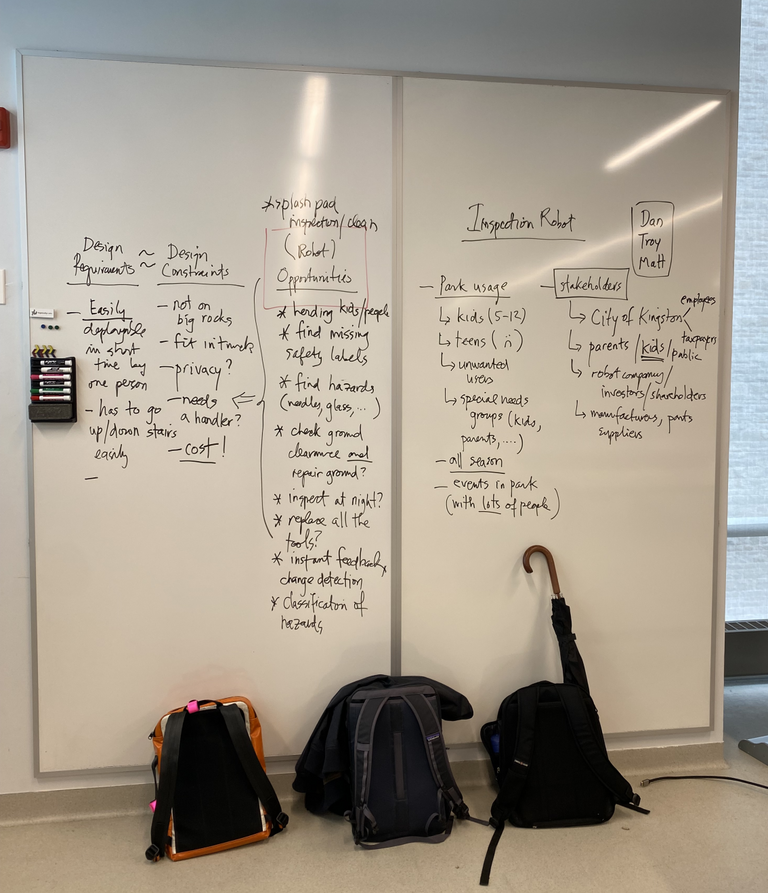 Design Requirments ~ ~
— Easily
deployable
in short
time by
one person
- has to go
up/down stairs
easily
—
Design
Constraints
— not on
big rocks
— fit in truck
— privacy?
— needs
a handler?
— cost!
* splash pad
inspection/clean
(Robot)
Opportunities
* herding kids/people
* find missing
safety labels
* find hazards
(needles, glass, ...)
* check ground
clearance and
repair ground?
* inspect at night?
* replace all the
tools?
* instant feedback,
change detection
* classification of
hazards
Inspection Robot
Dan
Troy
Matt
— Park usage
↳ kids (5-12)
↳ teens (¨n)
↳ unwanted
users
↳ special needs
groups (kids,
parents, ....)
— all season
— events in park
(with lots of people)
— stakeholders
↳ City of Kingston <
employees
taxpayers
↳ parents / kids / public
↳ robot company /
investors/shareholders
↳ manufacturers, parts
suppliers